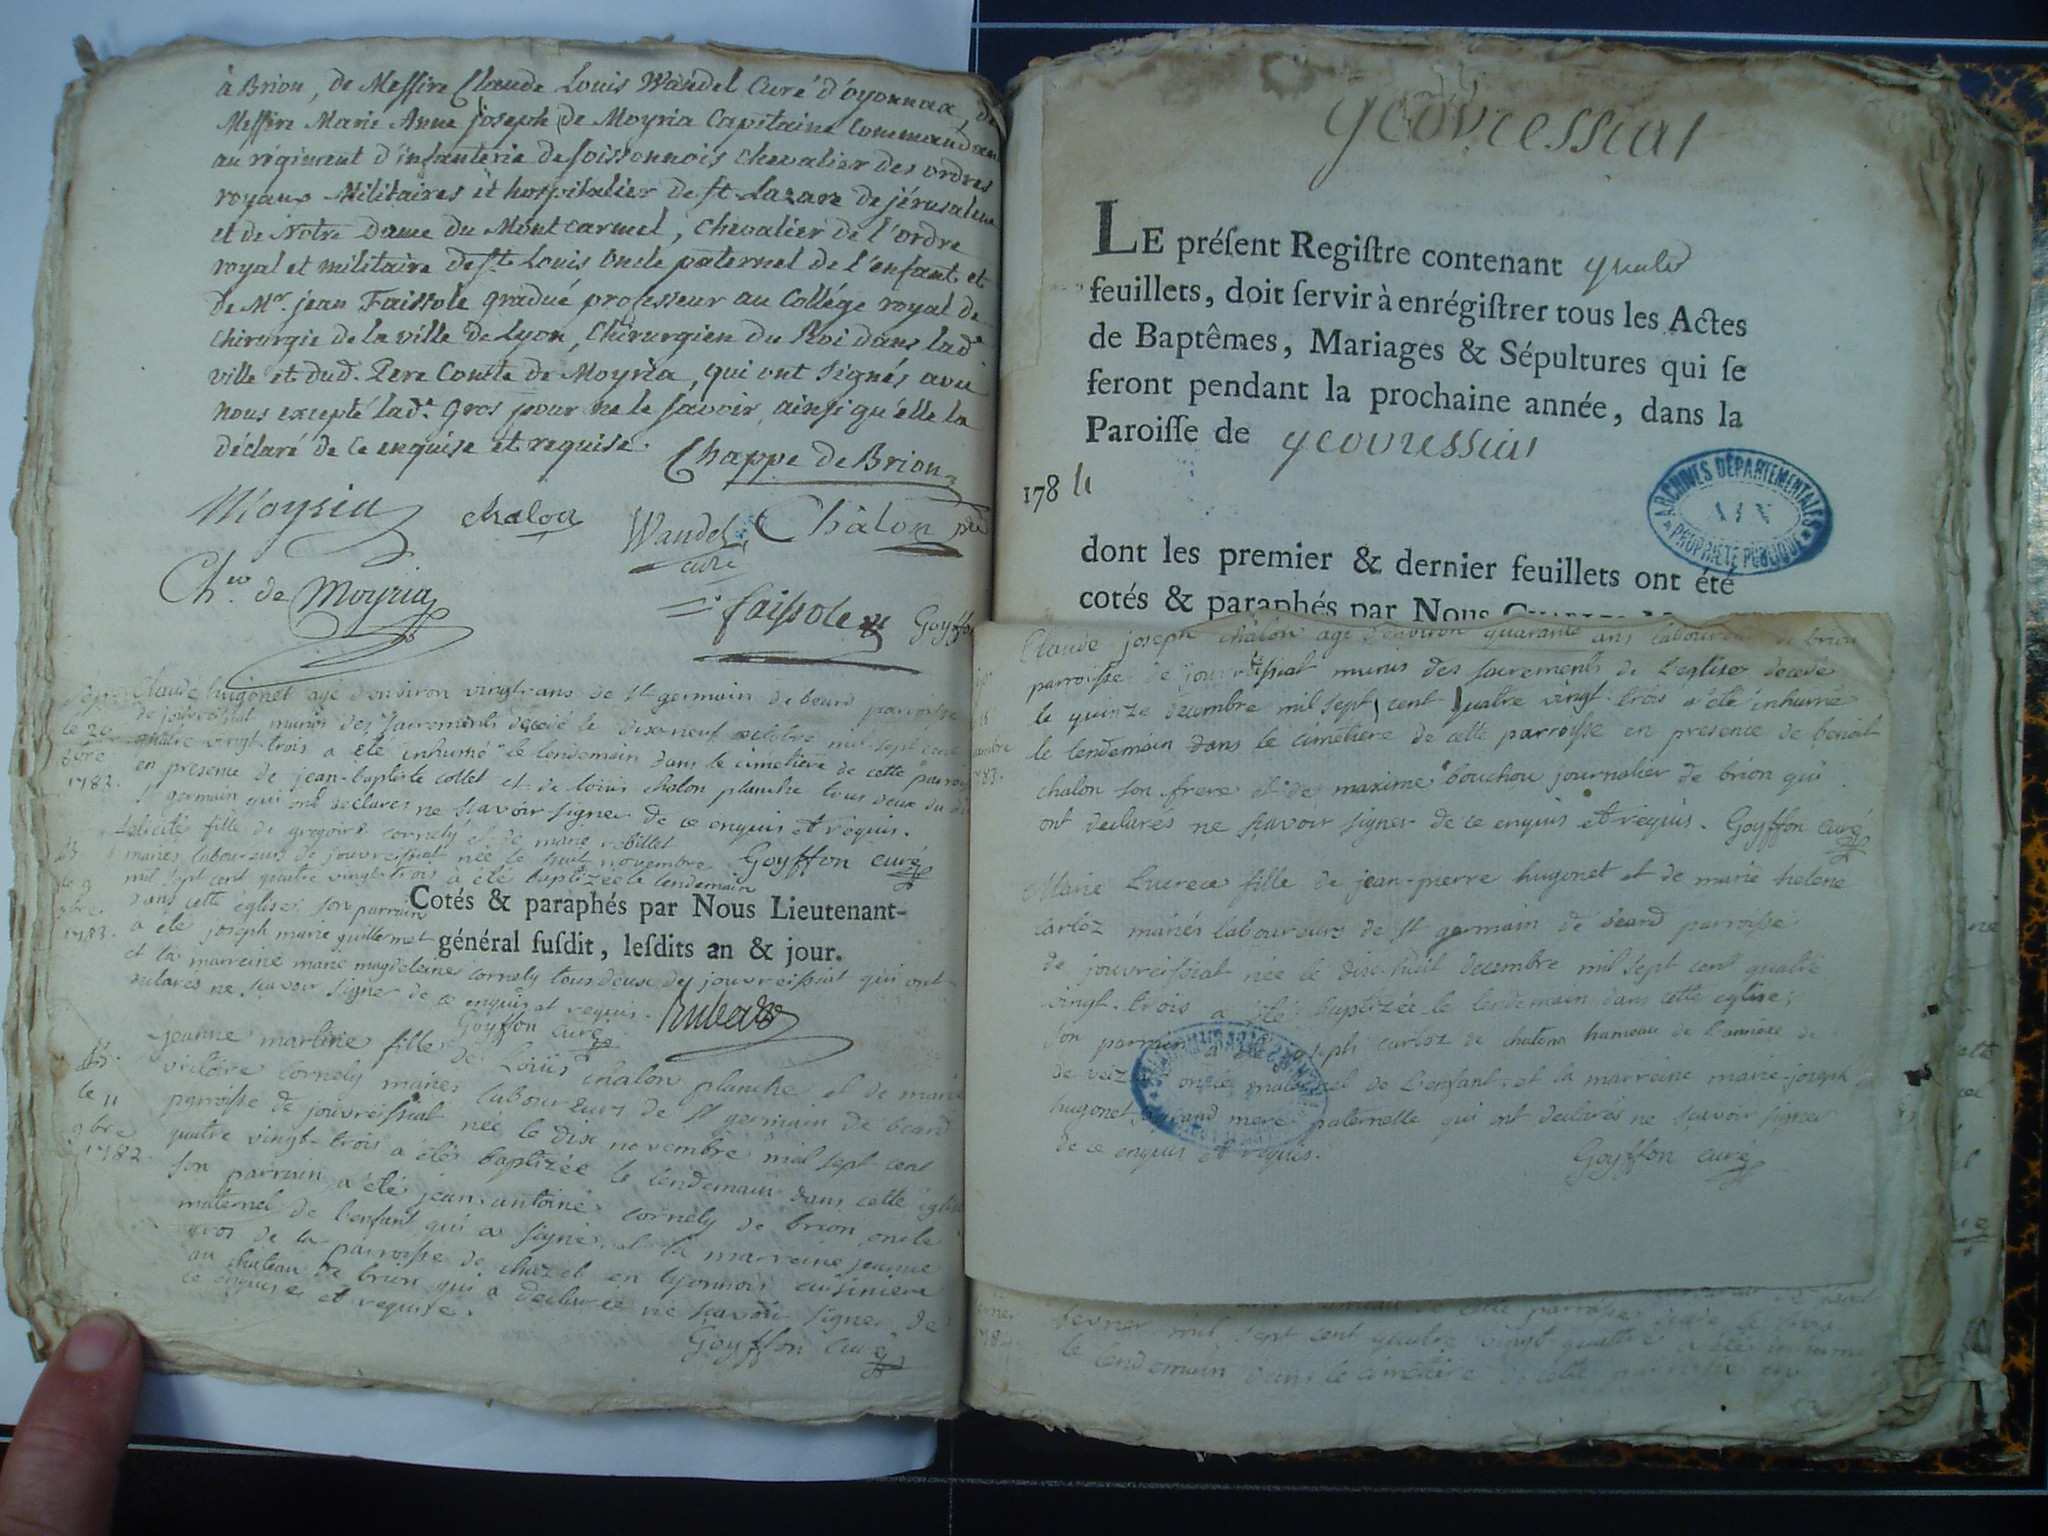 à Brion, de Messire Claude Louis Wandel Curé d'óyonnax, de
Messire Marie Anne joseph de Moyria Capitaine Commandan
au régiment d'infanterie de soissonnois chevalier des ordres
royaux Militaires et hospitalier de st Lazare de jérusalem
et de Notre Dame du Mont carmel, chevalier de l'ordre
royal et militaire de st Louis oncle paternel de l'enfant et
de Mr. jean Faissole gradué professeur au Collége royal de
chirurgie de la ville de Lyon, Chirurgien du Roi dans lade.
ville et dud. Pere Comte de Moyria, qui ont signés avec
nous excepté lade. Gros pour ne le savoir, ainsi qu'elle la
déclaré de ce enquise et requise.
Chappe de Brion
Moyria chalon Wandel curé Châlon
Cher de Moyria faissole Goyffon
Claude hugonet agé d'environ vingt ans de st germain de beard parroisse
de jouvreissiat munis des sacrements decedé le dix-neuf octobre mil sept cent
quatre vingt-trois a été inhumé le lendemain dans le cimetière de cette parroisse
en presence de jean-baptiste collet et de louis chalon planche tous deux du dit
st germain qui ont declarés ne sçavoir signer de ce enquis et requis.
le 20
8bre
1783.
Goyffon curé
felicité fille de gregoire cornely et de marie robillet
mariés laboureurs de jouvreissiat née le huit novembre
mil sept cent quatre vingt-trois a été baptizée le lendemain
dans cette église; son parrain
a été joseph marie guillermet
et la marreine marie magdeleine cornely tous deux de jouvreissiat qui ont
declarés ne sçavoir signer de ce enquis et requis.
Goyffon curé
le 9
9bre
1783.
Cotés & paraphés par Nous Lieutenant-
général susdit, lesdits an & jour.
jeanne martine fille de Loüis chalon planche et de marie
victoire cornely mariés laboureurs de st germain de beard
parroisse de jouvreissiat née le dix novembre mil sept cent
quatre vingt-trois a été baptizée le lendemain dans cette église
son parrain a été jean-antoine cornely de brion oncle
maternel de l'enfant qui a signé, et la marreine jeanne
gros de la parroisse de chazel en lyonnois cuisiniere
au chateau de brion qui a declarée ne sçavoir signer de
ce enquise et requise.
Goyffon curé
le 11
9bre
1783.
gcovressiat
LE présent Registre contenant quatre
feuillets, doit servir à enrégistrer tous les Actes
de Baptêmes, Mariages & Sépultures qui se
feront pendant la prochaine année, dans la
Paroisse de gcovressiat
178 4
ARCHIVES DÉPARTEMENTALES
AIN
PROPRIÉTÉ PUBLIQUE
dont les premier & dernier feuillets ont été
cotés & paraphés par Nous
Claude joseph chalon agé d'environ quarante ans laboureur de brion
parroisse de jouvreissiat munis des sacrements de l'eglise decedé
le quinze decembre mil sept cent quatre vingt-trois a été inhumé
le lendemain dans le cimetiere de cette parroisse en presence de benoit
chalon son frere et de maxime bouchou journalier de brion qui
ont declarés ne sçavoir signer de ce enquis et requis. Goyffon curé
Marie Lucrece fille de jean-pierre hugonet et de marie helene
carloz mariés laboureurs de st germain de beard parroisse
de jouvreissiat née le dix-huit decembre mil sept cent quatre
vingt-trois a été baptizée le lendemain dans cette eglise;
son parrain a été joseph carloz de chatena hameau de l'annexe de
de veiz oncle maternel de l'enfant, et la marreine marie-joseph
hugonet grand mere paternelle qui ont declarés ne sçavoir signer
de ce enquis et requis. Goyffon curé
fevrier mil sept cent quatre vingt quatre a été inhumé
le lendemain dans le cimetiere de cette parroisse en